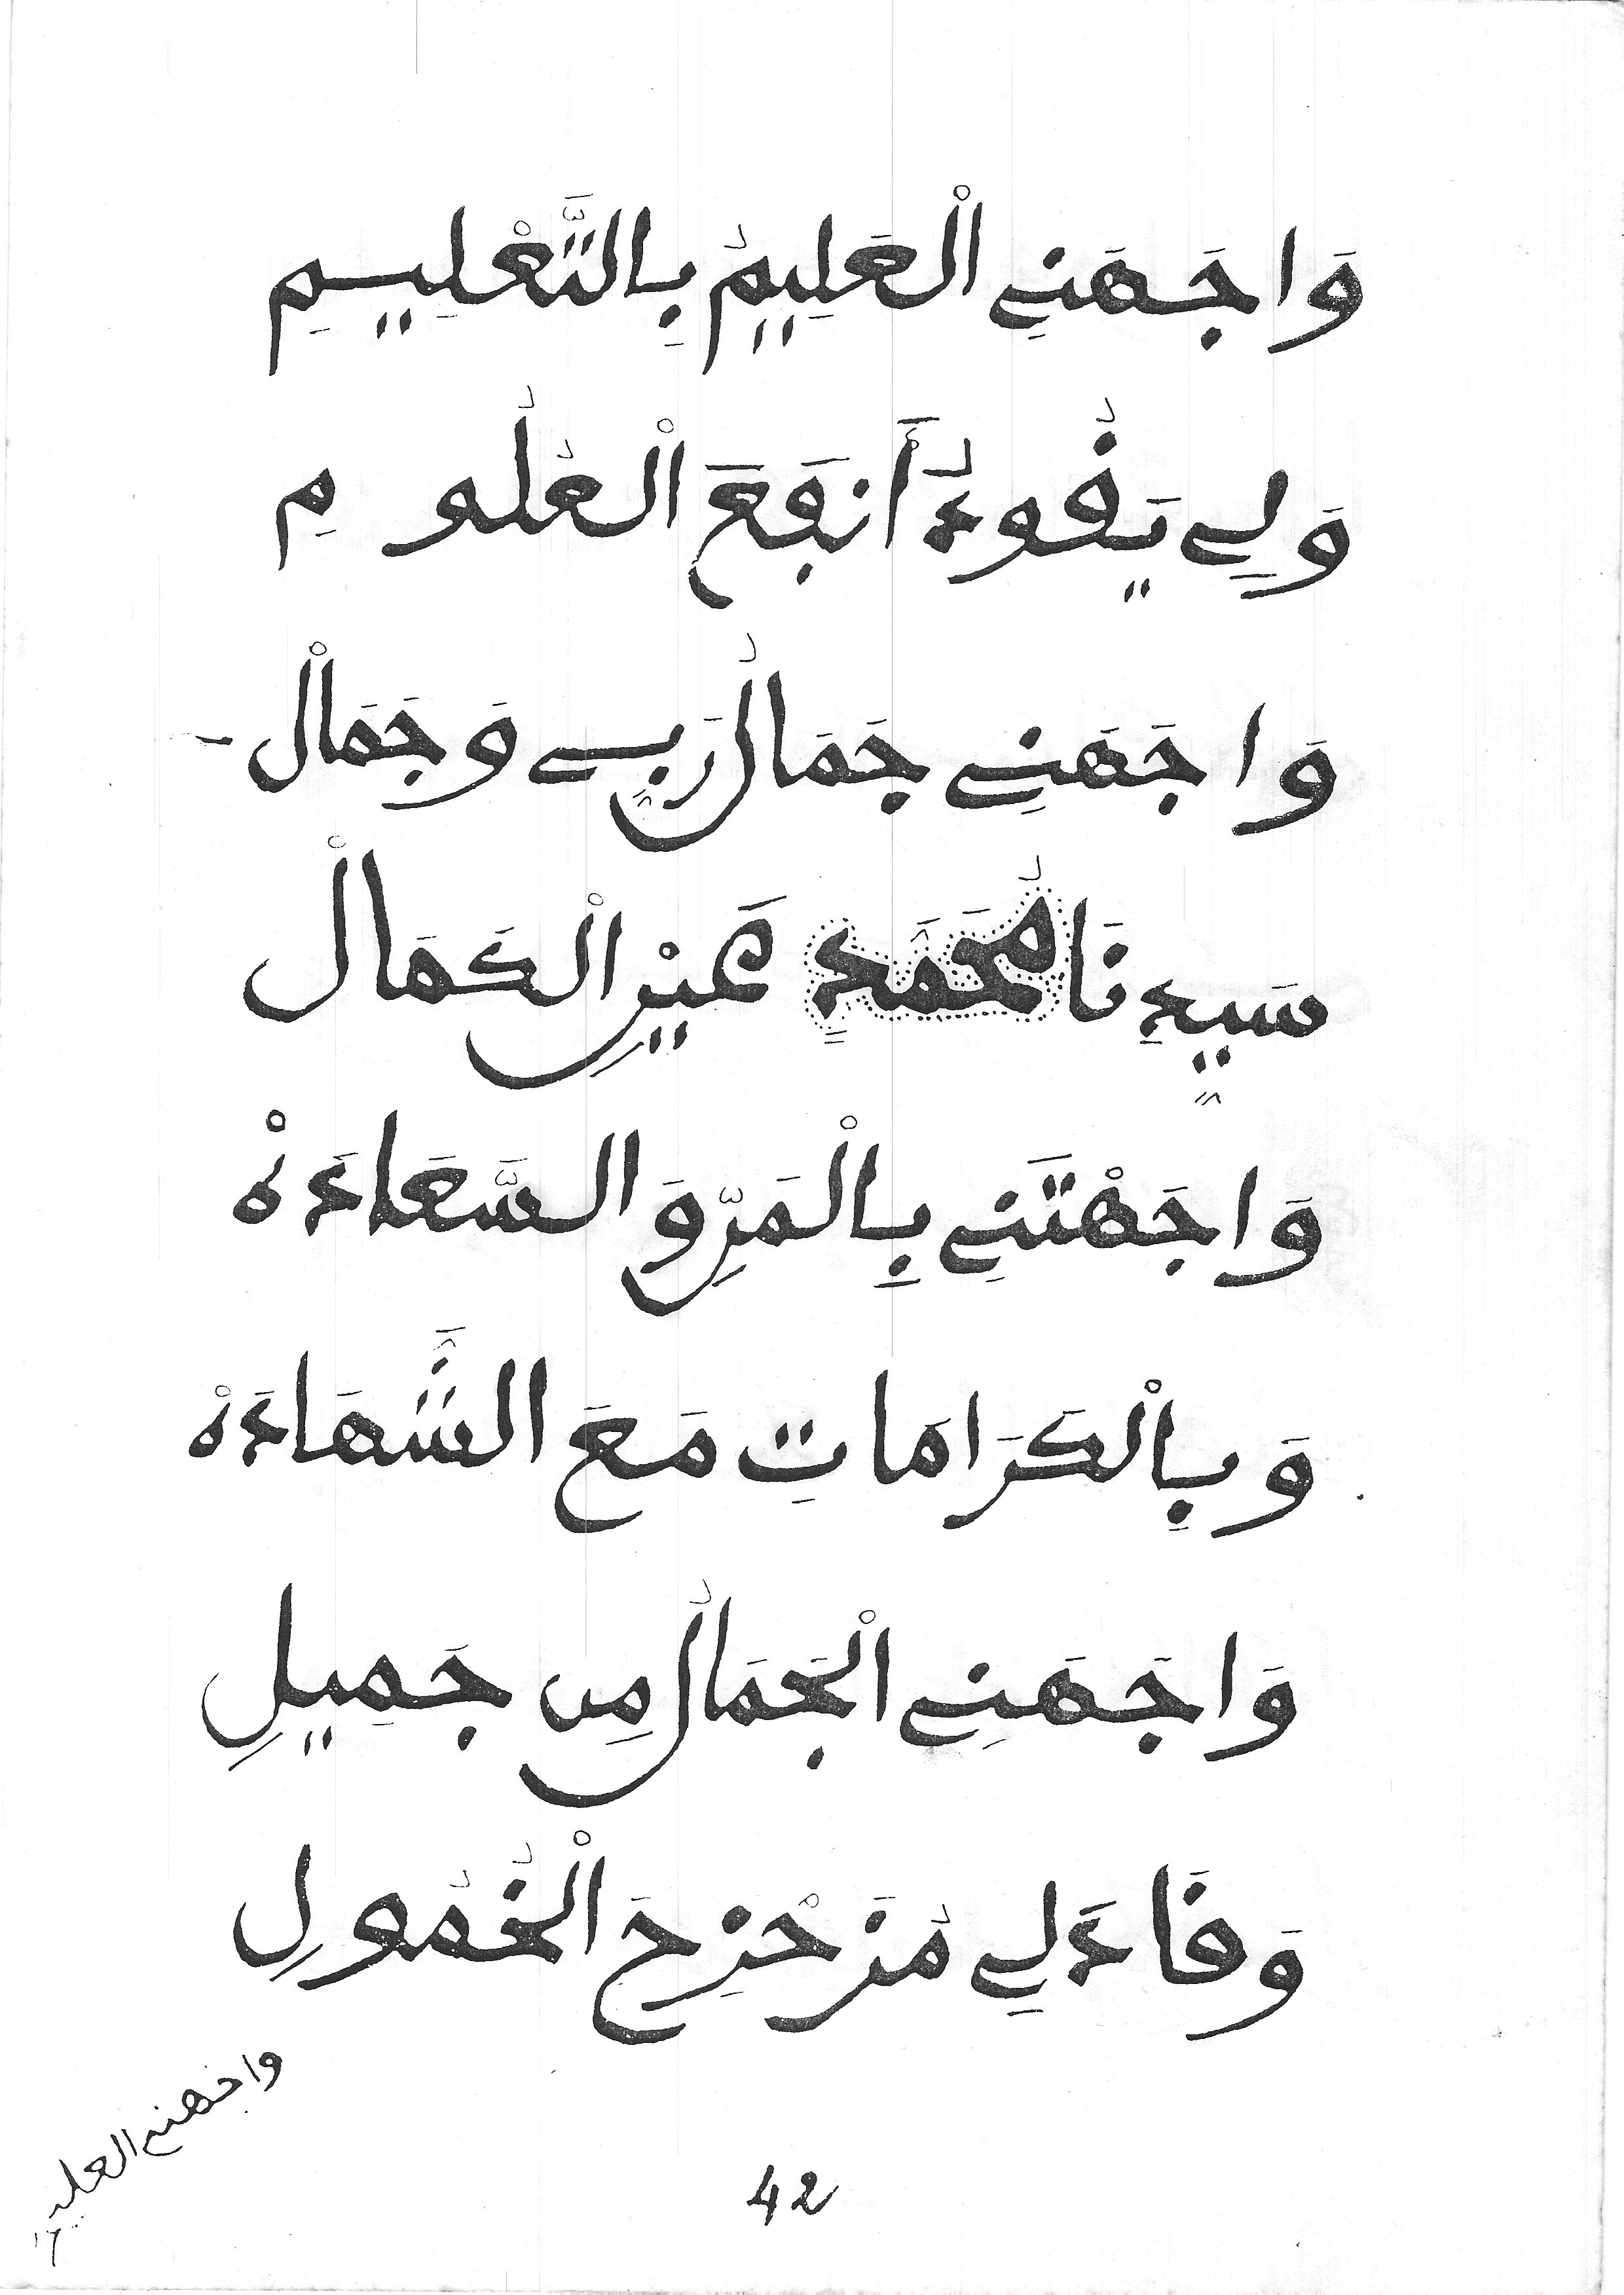 وَاجَهَنِي الْعَلِيمُ بِالتَّعْلِيمِ
وَلِي يَقُودُ أَنْفَعَ الْعُلُومِ
وَاجَهَنِي جَمَالُ رَبِّي وَجَمَالْ
سَيِّدِنَا مُحَمَّدٍ عَيْنِ الْكَمَالْ
وَاجَهْتَنِي بِالْمَنِّ وَالسَّعَادَهْ
وَبِالْكَرَامَاتِ مَعَ الشَّهَادَهْ
وَاجَهَنِي الْجَمَالُ مِن جَمِيلِ
وَقَادَ لِي مُزَحْزِحَ الْخُمُولِ
واجهني العليم
42